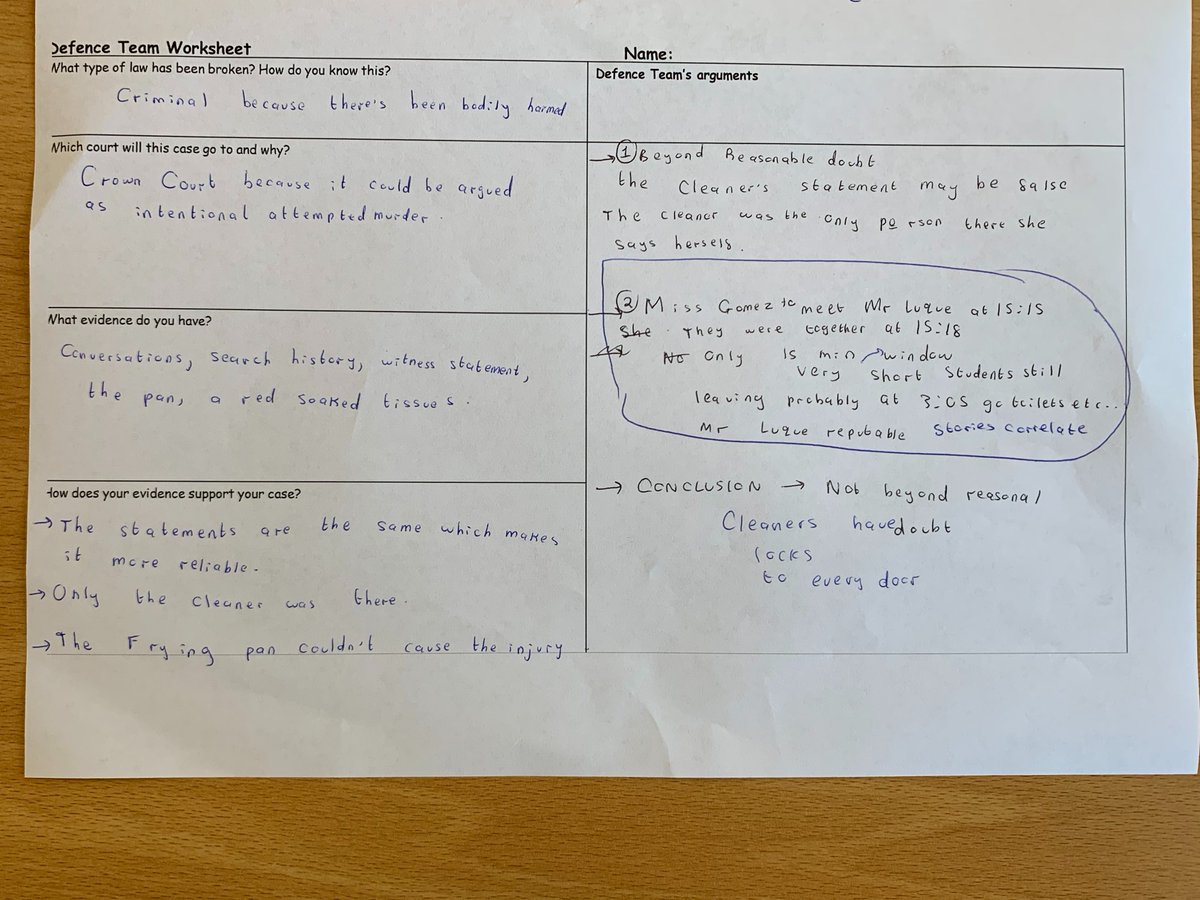 Defence Team Worksheet
Name:
What type of law has been broken? How do you know this?
Criminal because there's been bodily harmed
Which court will this case go to and why?
Crown Court because it could be argued
as intentional attempted murder.
What evidence do you have?
Conversations, search history, witness statement,
the pan, a red soaked tissues.
How does your evidence support your case?
→ The statements are the same which makes
it more reliable.
→ Only the cleaner was there.
→ The Frying pan couldn't cause the injury
Defence Team's arguments
→ ① Beyond Reasonable doubt
the Cleaner's statement may be false
The cleaner was the only person there she
says herself.
② Miss Gomez to meet Mr Luque at 15:15
She They were together at 15:18
No Only 15 min → window
very short students still
leaving probably at 3:05 go toilets etc..
Mr Luque reputable stories correlate
→ CONCLUSION → Not beyond reasonal
Cleaners have doubt
locks
to every door